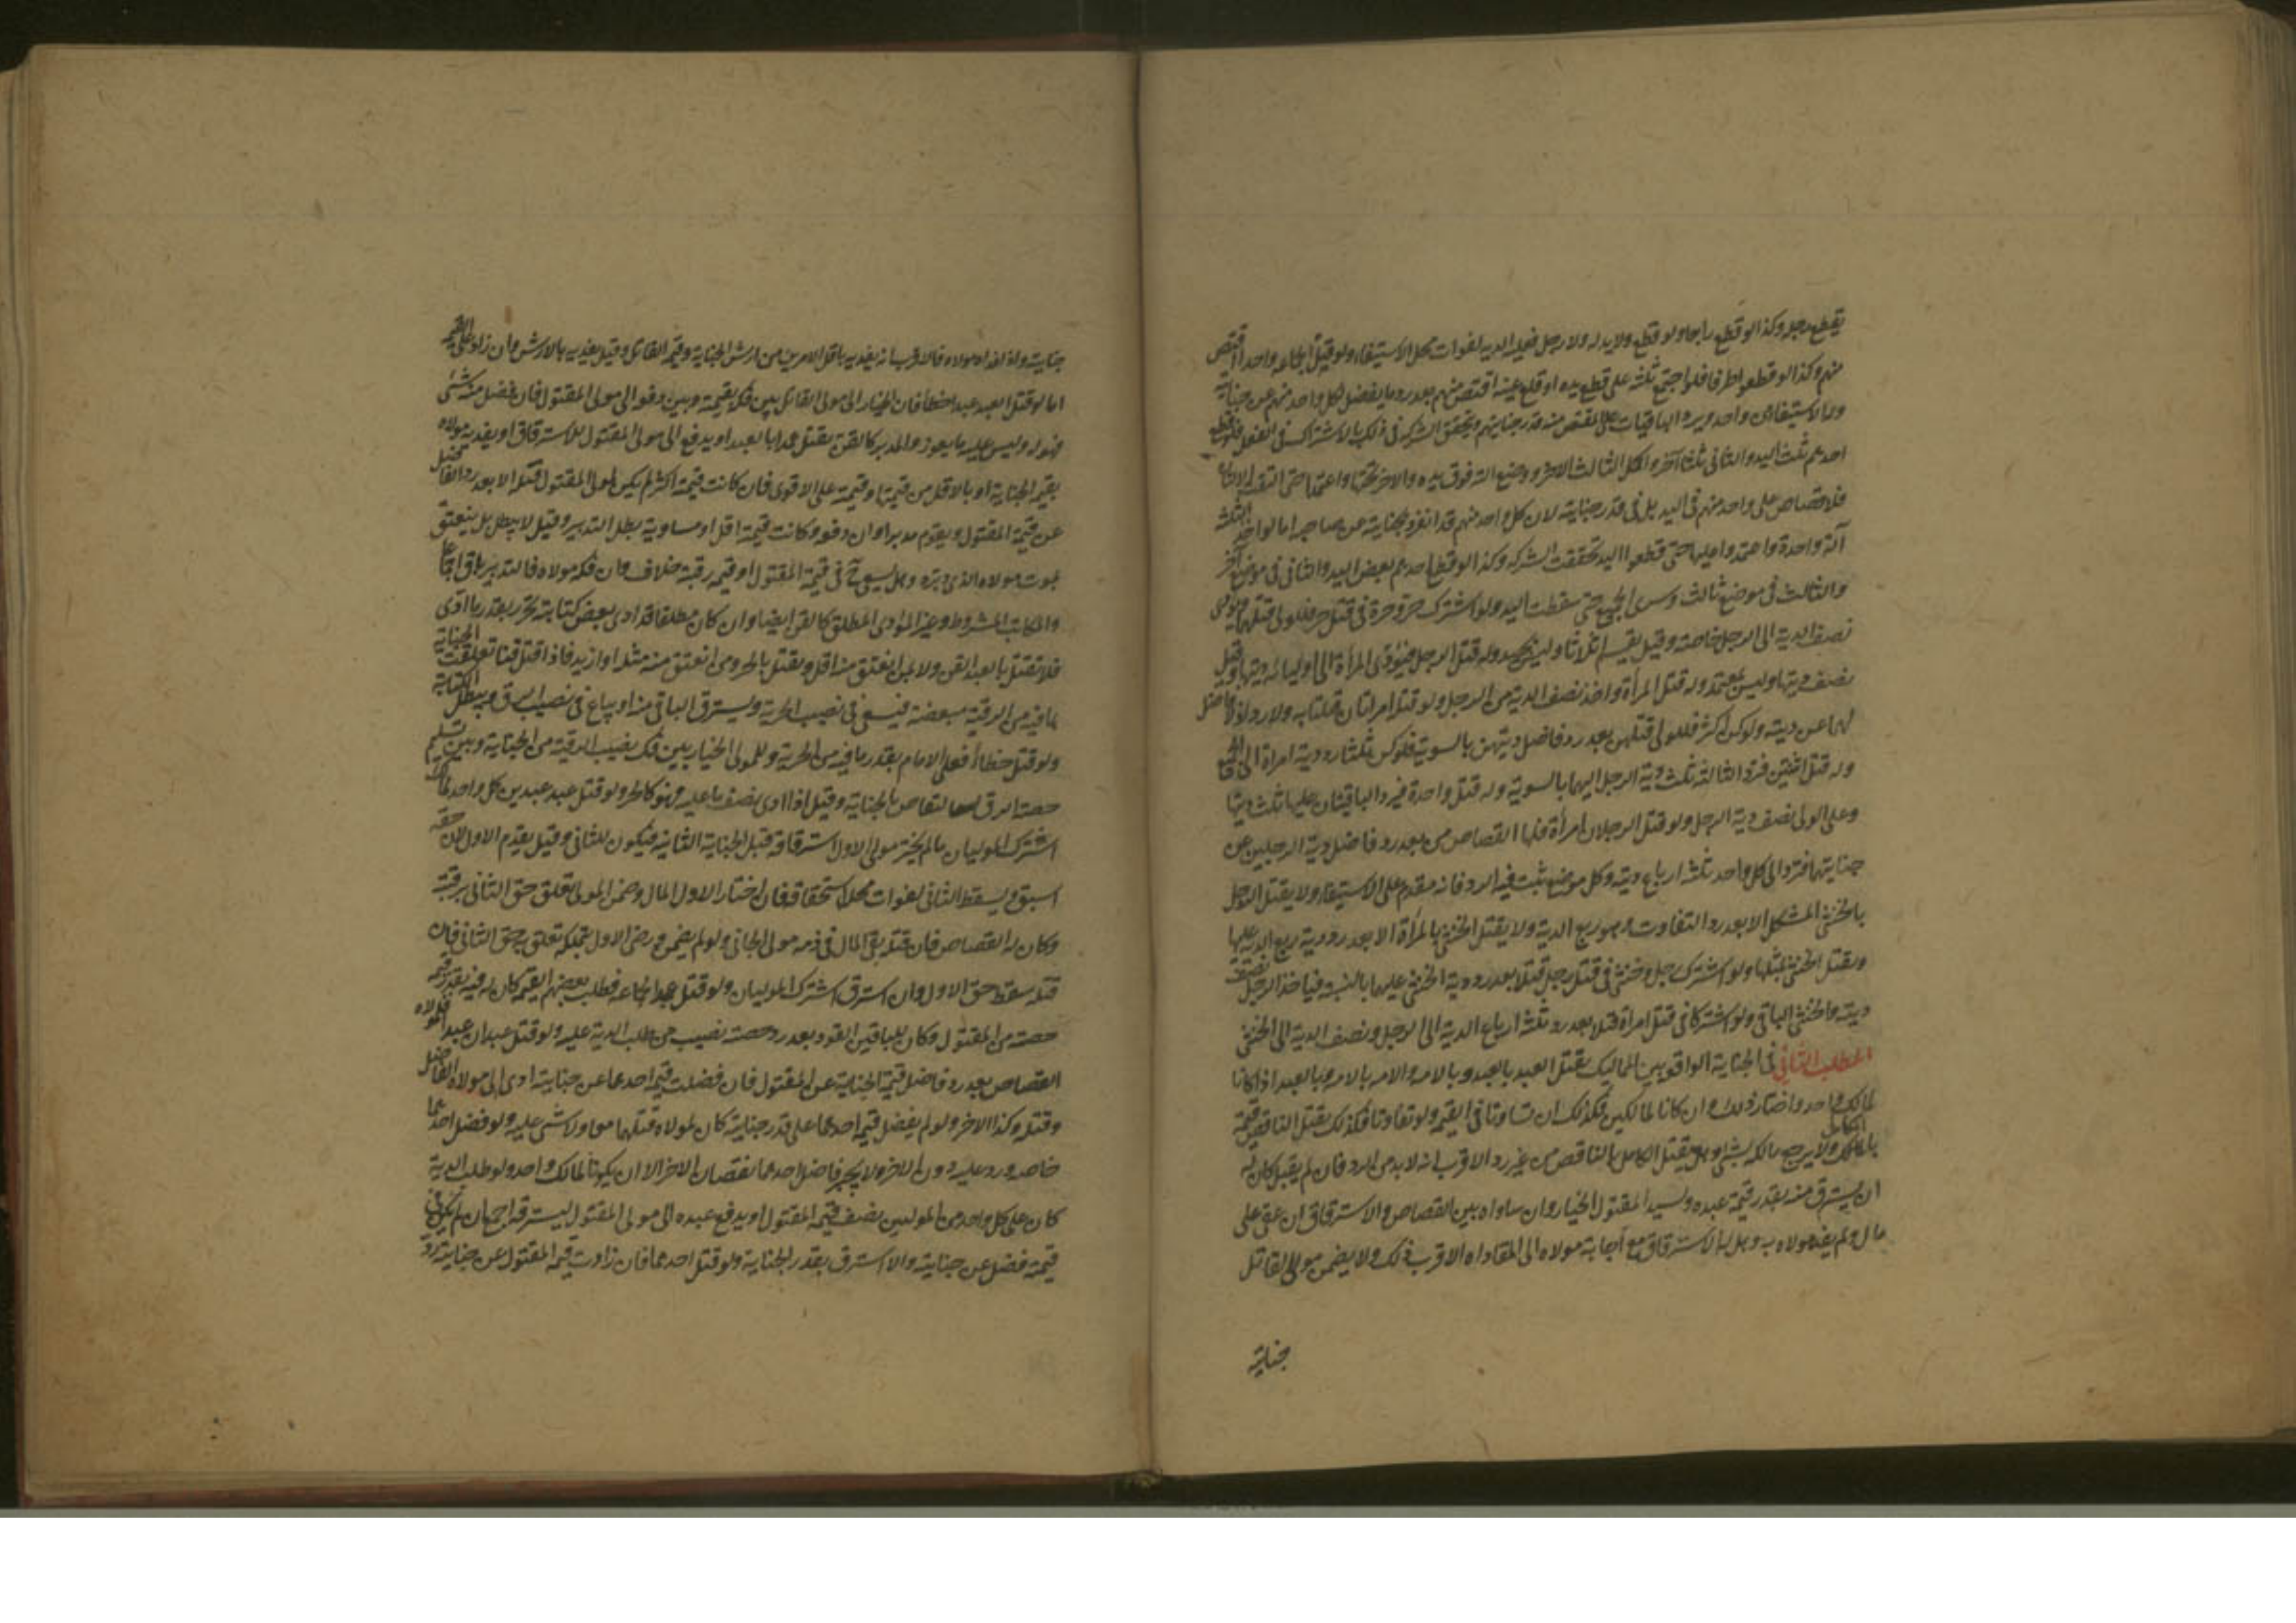 يقطع رجله وكذا لو قطع رابعا ولو قطع ولا يد له ولا رجل فعليه الدية لفوات محل الاستيفاء ولو قتل الجماعة واحدا اقتص
منهم وكذا لو قطعوا طرفا فلو اجتمع ثلثة على قطع يده او قلع عينه اقتص منهم بعد رد ما يفضل لكل واحد منهم عن جنايته
وله الاستيفاء من واحد ويرد الباقيات على المقتص منه قدر جنايتهم ويتحقق الشركة في ذلك بالاشتراك في الفعل فلو قطع
احدهم ثلث اليد والثاني ثلثا آخر واكمل الثالث الاخر او وضع الته فوق يده والاخر تحتها واعتمدا حتى التقت الالتان
فلا قصاص على واحد منهم في اليد بل في قدر جنايته لان كل واحد منهم قد انفرد بجنايته عن صاحبه اما لو اخذ الثلثة
آلة واحدة واعتمدوا عليها حتى قطعوا اليد تحققت الشركة وكذا لو قطع احدهم بعض اليد والثاني في موضع آخر
والثالث في موضع ثالث وسرى الجميع حتى سقطت اليد ولو اشترك حر وحرة في قتل حر فللولي قتلهما ويؤدي
نصف الدية الى الرجل خاصة وقيل يقسم اثلاثا وليس بجيد وله قتل الرجل فيؤدي المرأة الى اوليائه ديتها وقيل
نصف ديتها وليس بمعتمد وله قتل المرأة واخذ نصف الدية من الرجل ولو قتل امراتان قتلتا به ولا رد اذ لا فاضل
لهما عن ديته ولو كن اكثر فللولي قتلهن بعد رد فاضل ديتهن بالسوية فلو كن ثلثا رد دية امراة الى الجميع
وله قتل اثنتين فترد الثالثة ثلث دية الرجل اليهما بالسوية وله قتل واحدة فيرد الباقيتان عليها ثلث ديتها
وعلى الولي نصف دية الرجل ولو قتل الرجلان امرأة فلها القصاص من بعد رد فاضل دية الرجلين عن
جنايتهما فترد الى كل واحد ثلثة ارباع ديته وكل موضع ثبت فيه الرد فانه مقدم على الاستيفاء ولا يقتل الرجل
بالخنثى المشكل الا بعد رد التفاوت وهو ربع الدية ولا يقتل الخنثى بالمرأة الا بعد رد دية ربع الدية عليها
ويقتل الخنثى بمثلها ولو اشترك رجل وخنثى في قتل رجل قتلا بعد رد دية الخنثى عليهما بالنسبة فياخذ الرجل نصف
ديته والخنثى الباقي ولو اشتركا في قتل امرأة قتلا بعد رد ثلثة ارباع الدية الى الرجل ونصف الدية الى الخنثى
المطلب الثاني في الجناية الواقعة بين المماليك يقتل العبد بالعبد وبالامة والامة بالامة وبالعبد اذا كانا
لمالك واحد واختار ذلك وان كانا لمالكين فكذلك ان تساوتا في القيمة ولو تفاوتا فكذلك يقتل الناقص قيمة
بالكامل ولا يرجع مالكه بشئ وهل يقتل الكامل بالناقص من غير رد الاقرب انه لابد من الرد فان لم يقبل كان له
ان يسترق منه بقدر قيمة عبده ولسيد المقتول الخيار وان ساواه بين القصاص والاسترقاق ان عفى على
مال ولم يفده مولاه به وهل له الاسترقاق مع اجابة مولاه الى المفاداة الاقرب ذلك ولا يضمن مولى القاتل
جنايته
جنايته واذا افداه مولاه فالاقرب انه يفديه باقل الامرين من ارش الجناية وقيمة القاتل وقيل يفديه بالارش وان زاد على القيمة
اما لو قتل العبد عبدا خطأ فان الخيار الى مولى القاتل بين فكه بقيمته وبين دفعه الى مولى المقتول فان فضل منه شئ
فهو له وليس عليه ما يعوز والمدبر كالقن يقتل عمدا بالعبد او يدفع الى مولى المقتول للاسترقاق او يفديه مولاه
بقيمة الجناية او بالاقل من قيمتها وقيمته على الاقوى فان كانت قيمته اكثر لم يكن لمولى المقتول قتله الا بعد رد الفاضل
عن قيمة المقتول ويقوم مدبرا وان دفعه وكانت قيمته اقل او مساوية بطل التدبير وقيل لا يبطل بل ينعتق
بموت مولاه الذي دبره وهل يسعى ح في قيمة المقتول او قيمة رقبته خلاف وان فكه مولاه فالتدبير باق اجماعا
والمكاتب المشروط وغير المؤدي المطلق كالقن ايضا وان كان مطلقا قد ادى بعض كتابته تحرر بقدر ما ادى
فلا يقتل بالعبد القن ولا بمن انعتق منه اقل ويقتل بالحر ومن انعتق منه مثله او ازيد فاذا قتل قنا تعلقت الجناية
بما فيه من الرقية مبعضة فيسعى في نصيب الحرية ويسترق الباقي منه او يباع في نصيب الرق ويبطل الكتابة
ولو قتل خطأ فعلى الامام بقدر ما فيه من الحرية وللمولى الخيار بين فك نصيب الرقية من الجناية وبين تسليم
حصة الرق لتقاص بالجناية وقيل اذا ادى نصف ما عليه فهو كالحر ولو قتل عبد عبدين كل واحد لمالك
اشترك الموليان ما لم يختر مولى الاول استرقاقه قبل الجناية الثانية فيكون للثاني وقيل يقدم الاول لان حقه
اسبق ويسقط الثاني لفوات محل استحقاقه فان اختار الاول المال وضمن المولى تعلق حق الثاني برقبته
وكان له القصاص فان قتله بقي المال في ذمة مولى الجاني ولو لم يضمن ورضى الاول بتملكه تعلق به حق الثاني فان
قتله سقط حق الاول وان استرق اشترك الموليان ولو قتل عبدا لجماعة فطلب بعضهم القيمة كان له فيه بقدر قيمة
حصته من المقتول وكان للباقين القود بعد رد حصة نصيب من طلب الدية عليه ولو قتل عبدان عبدا فلمولاه
القصاص بعد رد فاضل قيمة الجناية عن المقتول فان فضلت قيمة احدهما عن جنايته ادى الى مولاه الفاضل
وقتله وكذا الاخر ولو لم يفضل قيمة احدهما على قدر جنايته كان لمولاه قتلهما معا ولا شئ عليه ولو فضل احدهما
خاصة رد عليه دون الاخر ولا يجبر فاضل احدهما نقصان الاخر الا ان يكونا لمالك واحد ولو طلب الدية
كان على كل واحد من الموليين نصف قيمة المقتول او يدفع عبده الى مولى المقتول ليسترقه اجمع ان لم يكن في
قيمته فضل عن جنايته والا استرق بقدر الجناية ولو قتل احدهما فان زادت قيمة المقتول عن جنايته رد